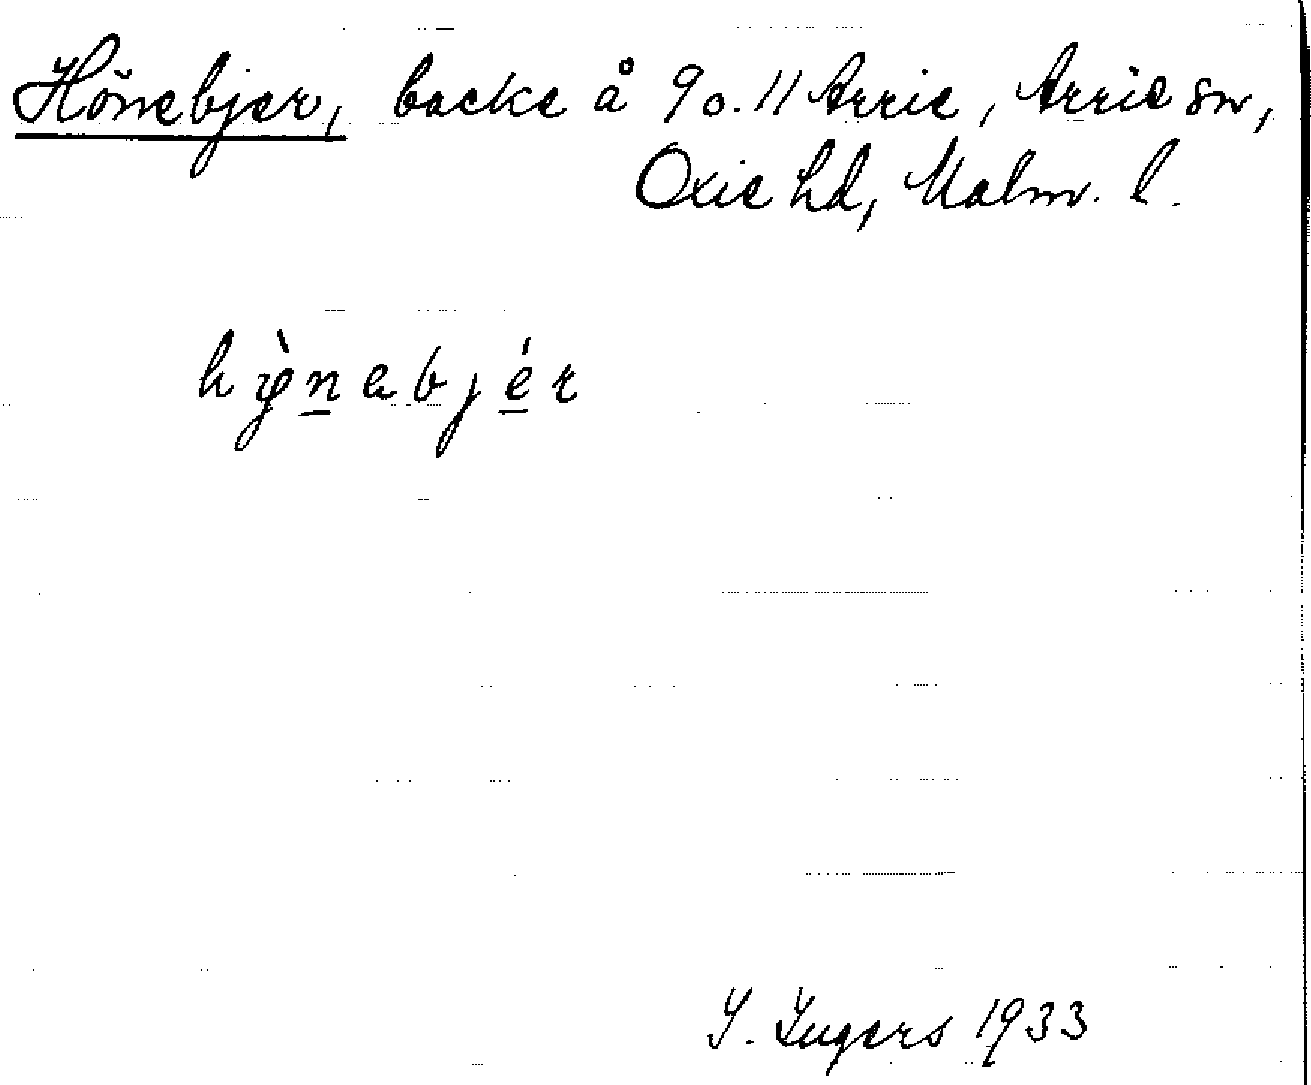 Hönebjer, backe å 9 o. 11 Arrie, Arrie sn,
Oxie hd, Malm. l.
hø̀nebjér
I. Ingers 1933